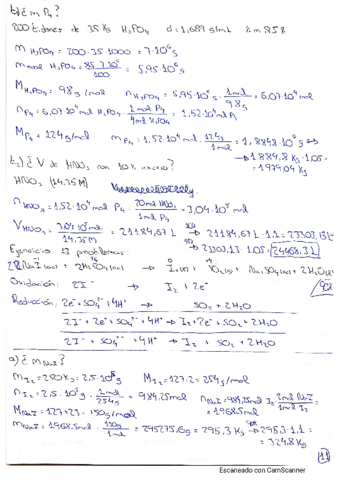 b) ¿m P4?
200 bidones de 35 Kg H3PO4 d = 1,689 g/mL r m 85%
m H3PO4 = 200·35·1000 = 7·10^6 g
85·7·10^6/100 = 5,95·10^6 g
M H3PO4 = 98 g/mol n H3PO4 = 5,95·10^6 g · 1mol/98g = 6,07·10^4 mol
n P4 = 6,07·10^4 mol H3PO4 · 1mol P4/4mol H3PO4 = 1,52·10^4 mol P4
M P4 = 124 g/mol m P4 = 1,52·10^4 mol · 124g/1mol = 1,8848·10^6 g
→ 1884,8 Kg · 1.05 =
= 1979,04 Kg
¿V de HNO3 con 10% exceso?
HNO3 (14.35M)
n HNO3 = 1,52·10^4 mol P4 · 20mol HNO3/1mol P4 = 3,04·10^5 mol
V HNO3 = 3,04·10^5 mol/14,35M = 21184,67 L → 21184,67 L · 1.1 = 23303,13 L
→ 23303,13 · 1.05 = 24468.3 L
Ejercicio 13 problemas
2NaI (ac) + 2H2SO4 (ac) → I2 (s) + SO2 (g) + Na2SO4 (ac) + 2H2O (l)
Oxidación: 2I⁻ → I2 + 2e⁻
Reducción: 2e⁻ + SO4²⁻ + 4H⁺ → SO2 + 2H2O
2I⁻ + 2e⁻ + SO4²⁻ + 4H⁺ → I2 + 2e⁻ + SO2 + 2H2O
2I⁻ + SO4²⁻ + 4H⁺ → I2 + SO2 + 2H2O
a) ¿m NaI?
m I2 = 250Kg = 2.5·10^5 g M I2 = 127·2 = 254 g/mol
n I2 = 2.5·10^5 g · 1mol/254g = 984,25 mol n NaI = 984,25mol I2 · 2mol NaI/1mol I2
= 1968.5 mol
M NaI = 127+23 = 150 g/mol
m NaI = 1968.5 mol · 150g/1mol = 295275,6 g = 295.3 Kg → 295.3·1.1 =
= 324.8 Kg
11
Escaneado con CamScanner